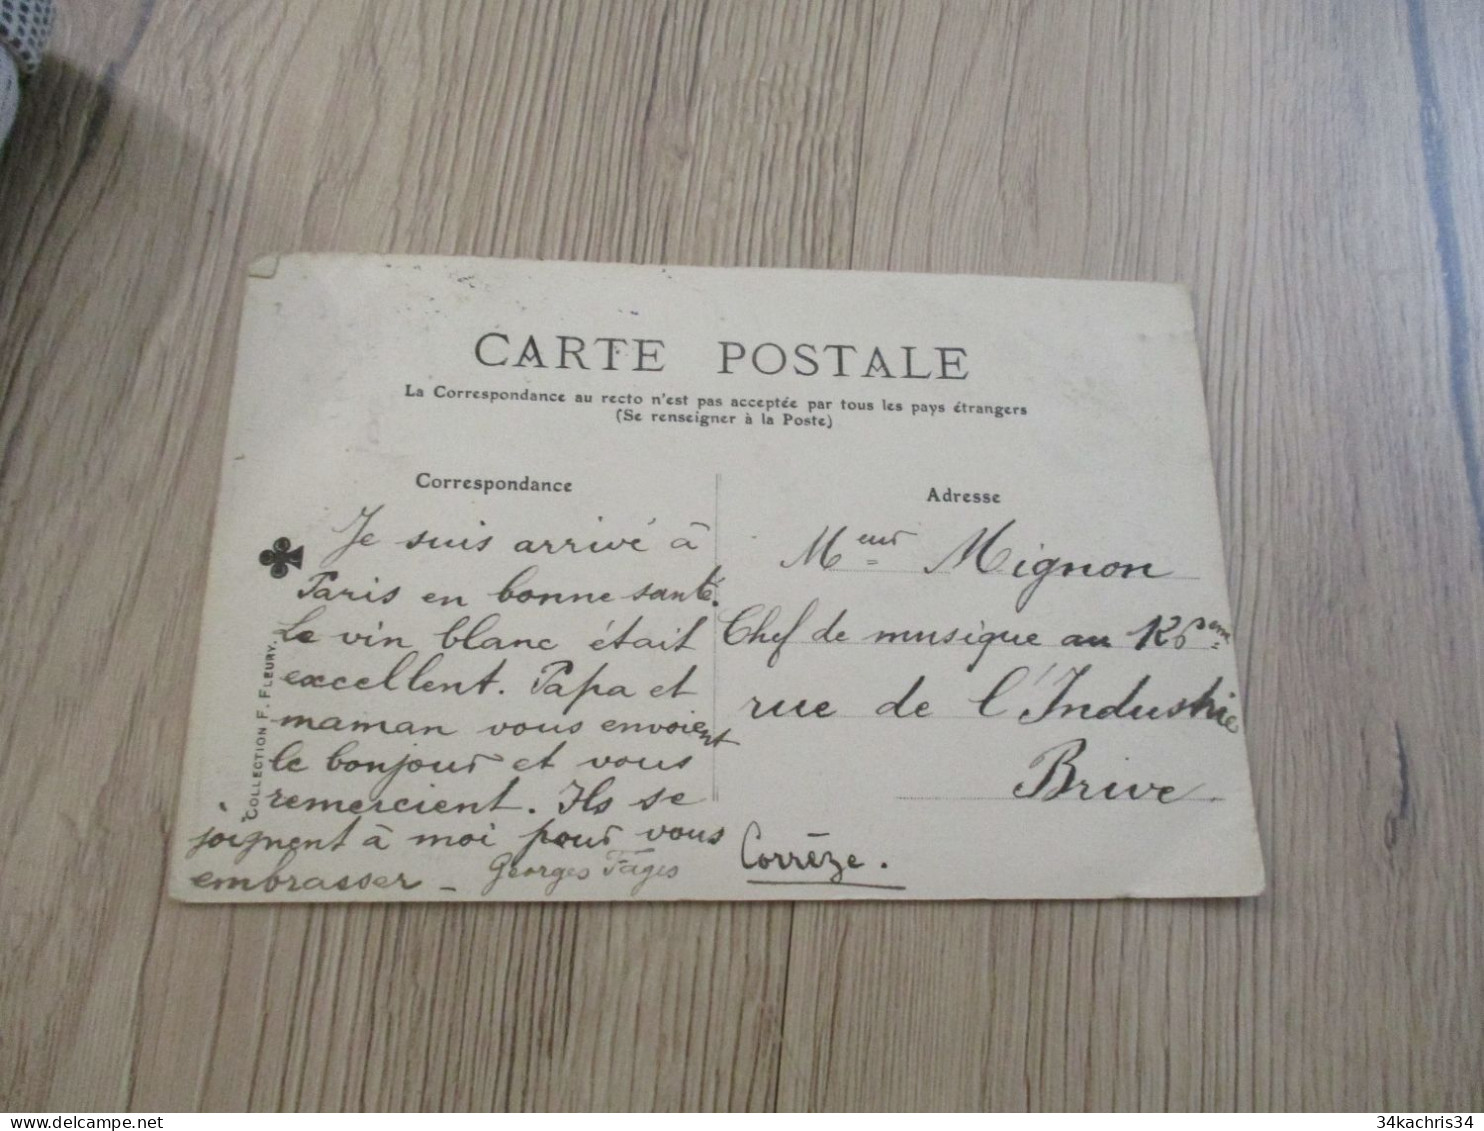 CARTE POSTALE
La Correspondance au recto n'est pas acceptée par tous les pays étrangers
(Se renseigner à la Poste)
Correspondance
Je suis arrivé à
Paris en bonne santé.
Le vin blanc était
excellent. Papa et
maman vous envoient
le bonjour et vous
remercient. Ils se
joignent à moi pour vous
embrasser - Georges Fages
COLLECTION F. FLEURY.
Adresse
Mignon
Chef de musique au 126ème
rue de l'Industrie
Brive
Corrèze.
34kachris34
www.delcampe.net